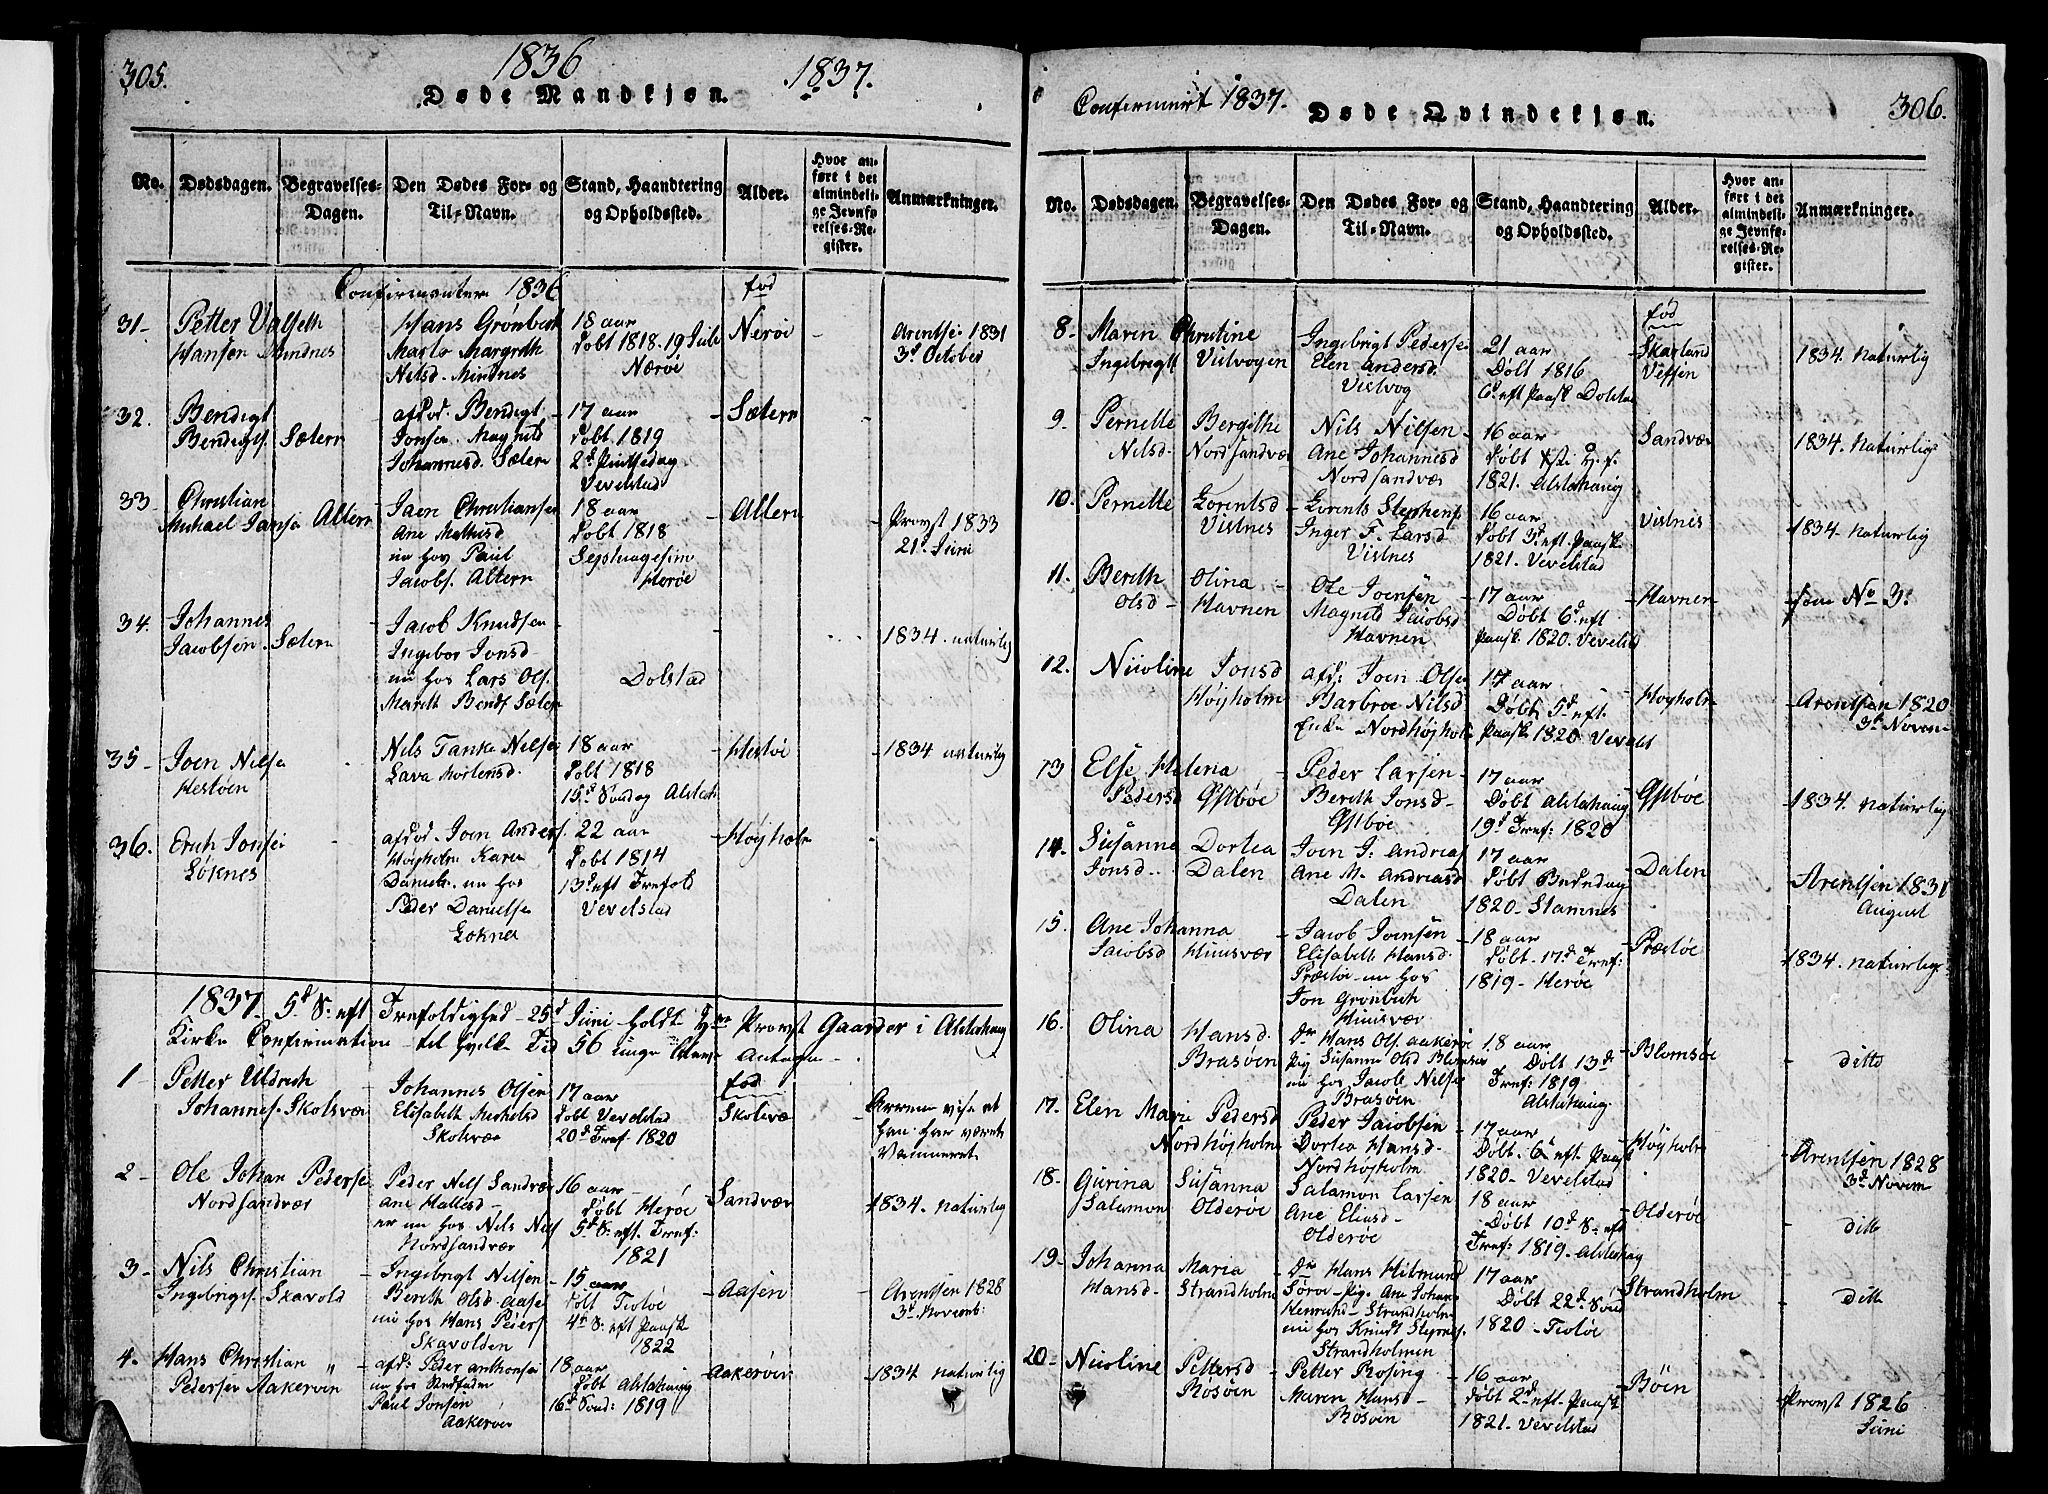 305.
1836
1837.
Døde Mandkjøn.
No.
Dødsdagen.
Begravelses-Dagen.
Den Dødes For- og Til-Navn.
Stand, Haandtering og Opholdssted.
Alder.
Hvor anført i det almindelige Jevnførelses-Register.
Anmærkninger.
Confirmanter 1836
fød
31-
Petter Valseth
Hansen Mindnes
Hans Grønbech
Marta Margreth
Nilsd. Mindnes
18 aar
Døbt 1818. 19 Juli
Nærøe
Nerøe
Arentsen 1831
3d October
32.
Bendigt
Bendigs. Sætern
afdød. Bendigt
Jonsen. Magnild
Johannesd. Sætern
17 aar
Døbt 1819
2d Pintsedag
Vevelstad
Sætern
33
Christian
Michael Jansen Altern
Jaen Christiansen
Ane Mathisd
nu hos Paul
Jacobs. Altern
18 aar
Døbt 1818
Septuagesim
Herøe
Altern
Provst 1833
21d Juni
34.
Johannes
Jacobsen. Sætern
Jacob Knudsen
Ingebor Jonsd
nu hos Lars Ols.
Marelt Bends Sætern
Dolstad
1834. naturlig
35
Joen Nilsen
Hestøen
Nils Tanke Nilsen
Lava Mortensd.
18 aar
Døbt 1818
15d Sondag Alstah
Hestøe
1834 naturlig
36.
Erich Jonsen
Løknes
afdød. Joen Anders.
Høyholm Karen
Daniels. nu hos
Peder Danielsen
Loknes
22 aar
Døbt 1814
13d eft Trefold
Vevelstad
Høyholm
1837. 5d S: eft Trefoldighed - 25d Juni holdt Hrr Provst Gaarder i Alstahaug
Kirke Confirmation - til hvilken Tid 56 unge Antagen
1
Petter Uldrich
Johannes. Skolsvær
Johannes Olsen
Elisabeth Michelsd
Skolsvær
17 aar
Døbt Vevelstad
20d Tref: 1820
fød
Skolsvær
han har været
Vaccineret
2
Ole Johan Pedersen
Nordsandvær
Peder Nils Sandvær
Ane Hallesd
er nu hos Nils Nils
Nordsandvær
16 aar
Døbt Herøe
5d S: eft. Tref:
1821
Sandvær
1834. naturlig
3
Nils Christian
Ingebrigs. Skavold
Ingebrigt Nilsen
Bereth Olsd Aasen
nu hos Hans Peders
Skavolden
15 aar
Døbt Tiøtøe
4d S: eft Paaske
1822
Aasen
Arentsen 1828
3d Novemb:
4.
Hans Christian
Pedersen Aakerøen
afd: Peder Anthonsen
nu hos Stedfader
Paul Jonsen
Aakerøen
18 aar
Døbt Alstahaug
16d Sond: 1819
Aakerøen
1834 naturlig
306.
Confirmert 1837.
Døde Qvindekjøn.
No.
Dødsdagen.
Begravelses-Dagen.
Den Dødes For- og Til-Navn.
Stand, Haandtering og Opholdssted.
Alder.
Hvor anført i det almindelige Jevnførelses-Register.
Anmærkninger.
fød
8
Maren Christine
Ingebrigt Vistvogen
Ingebrigt Pedersen
Elen Andersd.
Vistvog
21 aar
Døbt 1816
6d eft Paask Dolstad
Skarland
Vefsen
1834. naturlig
9
Pernelle Bergithe
Nilsd. Nordsandvær
Nils Nilsen
Ane Johannesd
Nordsandvær
16 aar
1821. Alstahaug
Sandvær
1834. naturlig
10.
Pernelle Lorentsd
Vistnes
Lorents Stephens
Inger F. Larsd
Vistnes
16 aar
Døbt 3d eft. Paask
1821. Vevelstad
Vistnes
1834. naturlig
11.
Bereth Olina
Olsd Havnen
Ole Joensen
Magnild Jacobsd
Havnen
17 aar
Døbt 6d eft
Paask. 1820. Vevelstad
Havnen
som No 3.
12.
Nicoline Jonsd
Høyholm
afd: Joen Olsen
Barbroe Nilsd
Enke Nordhøyholm
17 aar
Døbt 5d eft
Paask 1820 Vevelst
Høyholm
Arentsen 1820
3d Novem
13
Else Helena
Pedersd Østbøe
Peder Larsen
Bereth Jonsd
Østbøe
17 aar
Døbt Alstahaug
19d Tref: 1820
Østbøe
1834. naturlig
14.
Susanna Dortea
Jonsd Dalen
Joen J: Andreas
Ane M. Andreasd
Dalen
17 aar
Døbt Bededag
1820 - Stamnes
Dalen
Arentsen 1831
August
15.
Ane Johanna
Jacobsd Huusvær
Jacob Joensen
Elisabeth Hansd.
Præstøe nu hos
Jon Grønbech
Huusvær
18 aar
Døbt. 17d Tref:
1819 - Herøe
Præstøe
1834. naturlig
16.
Olina Hansd.
Brasøen
Dr Hans Ols. Aakerøe
Pig Susanna Olsd Blomsøe
nu hos Jacob Nilsen
Brasøen
18 aar
Døbt 13d
Tref: 1819
Alstahaug
Blomsøe
ditto
17.
Elen Maria Pedersd
Nordhøjholm
Peder Jacobsen
Dortea Hansd.
Nordhøjholm
17 aar
Døbt. 6 eft Paask
1820. Vevelstad
Høyholm
Arentsen 1828
3d Novem
18.
Gurina Susanna
Salamon Olderøe
Salamon Larsen
Ane Eliasd
Olderøe
18 aar
Døbt 10d S: eft
Tref: 1819. Alstahaug
Olderøe
ditt
19.
Johanna Maria
Hansd. Strandholm
Dr Hans Hitmund
Sørøe - Pig. Ane Johans
Strandholm
nu hos Knudt Styrnes.
Strandholmen
17 aar
Døbt 22d Sond
1820 - Tiøtøe
Strandholm
ditt
20
Nicoline Pettersd
Rosøen
Petter Rosing
Maren Hansd
Rosøen
16 aar
Døbt 2d eft. Paask
1821. Vevelstad
Bøen
Provst 1826
Juni